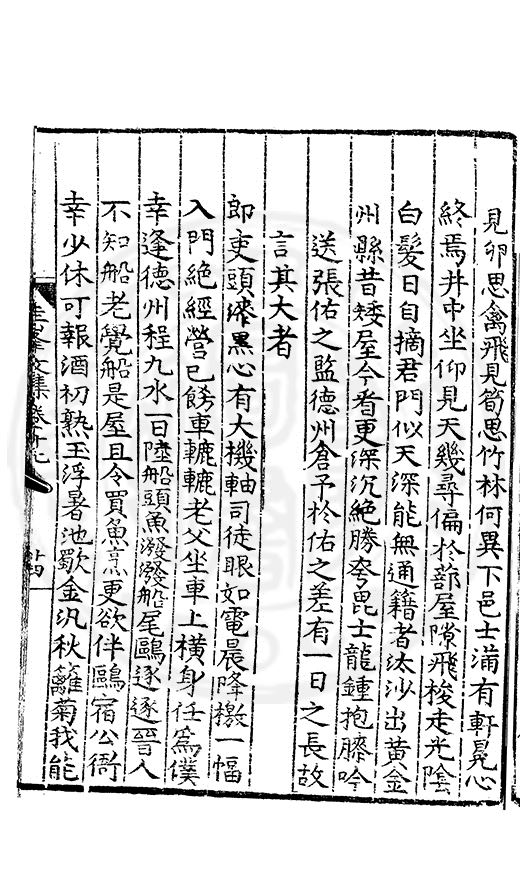 見卵思禽飛見筍思竹林何異下邑士滿有軒冕心
終焉井中坐仰見天幾尋偏於蔀屋隙飛梭走光陰
白髮日自摘君門似天深能無通籍者汰沙出黃金
州縣昔矮屋今看更深沉絶勝夸毘士龍鍾抱膝吟
送張佑之監德州倉予於佑之差有一日之長故
言其大者
郎吏頭漆黒心有大機軸司徒眼如電晨降檄一幅
入門絶經營已餝車轆轆老父坐車上橫身任爲僕
幸逢德州程九水一日陸船頭魚潑潑船尾鷗逐逐晉人
不知船老覺船是屋且令買魚烹更欲伴鷗宿公衙
幸少休可報酒初熟玉浮暑池歠金汎秋籬菊我能
圭峯文集卷十九